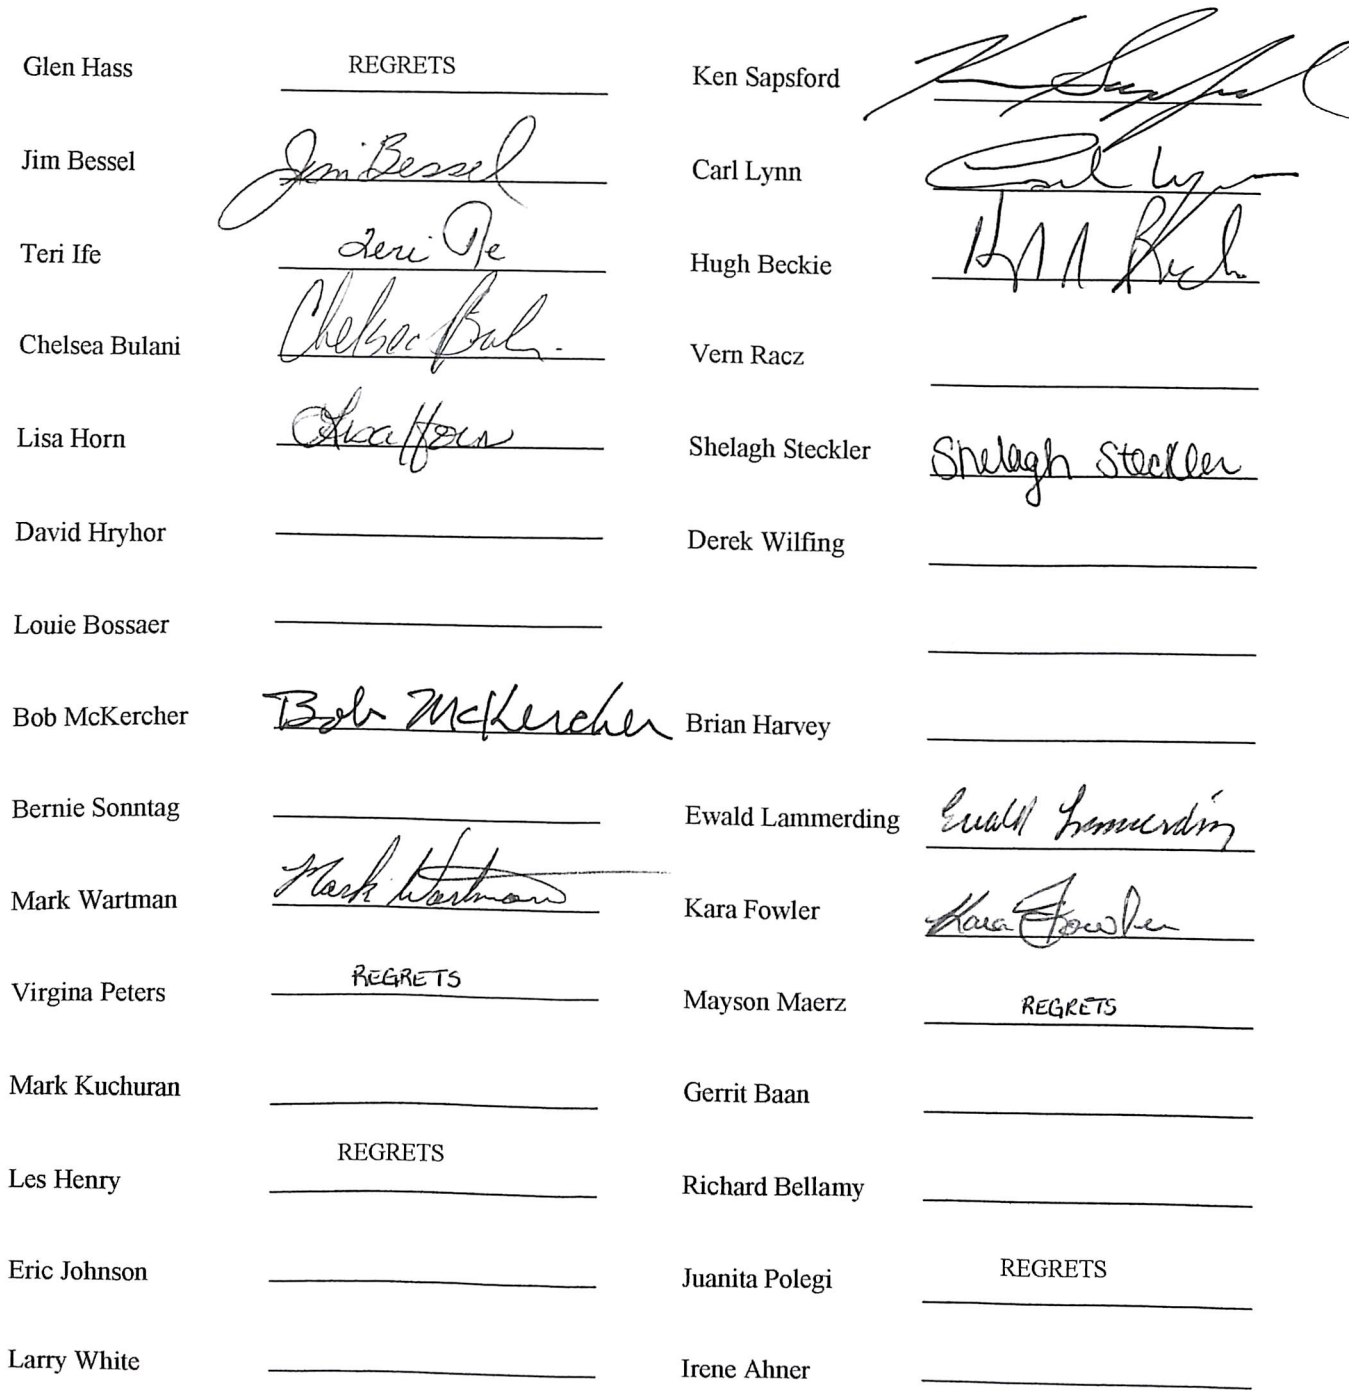 Glen Hass REGRETS
Jim Bessel Jim Bessel
Teri Ife Teri Ife
Chelsea Bulani Chelsea
Lisa Horn Lisa Horn
David Hryhor
Louie Bossaer
Bob McKercher Bob McKercher
Bernie Sonntag
Mark Wartman Mark Wartman
Virgina Peters REGRETS
Mark Kuchuran
Les Henry REGRETS
Eric Johnson
Larry White
Ken Sapsford
Carl Lynn Carl Lynn
Hugh Beckie
Vern Racz
Shelagh Steckler Shelagh Steckler
Derek Wilfing
Brian Harvey
Ewald Lammerding Ewald Lammerding
Kara Fowler Kara Fowler
Mayson Maerz REGRETS
Gerrit Baan
Richard Bellamy
Juanita Polegi REGRETS
Irene Ahner